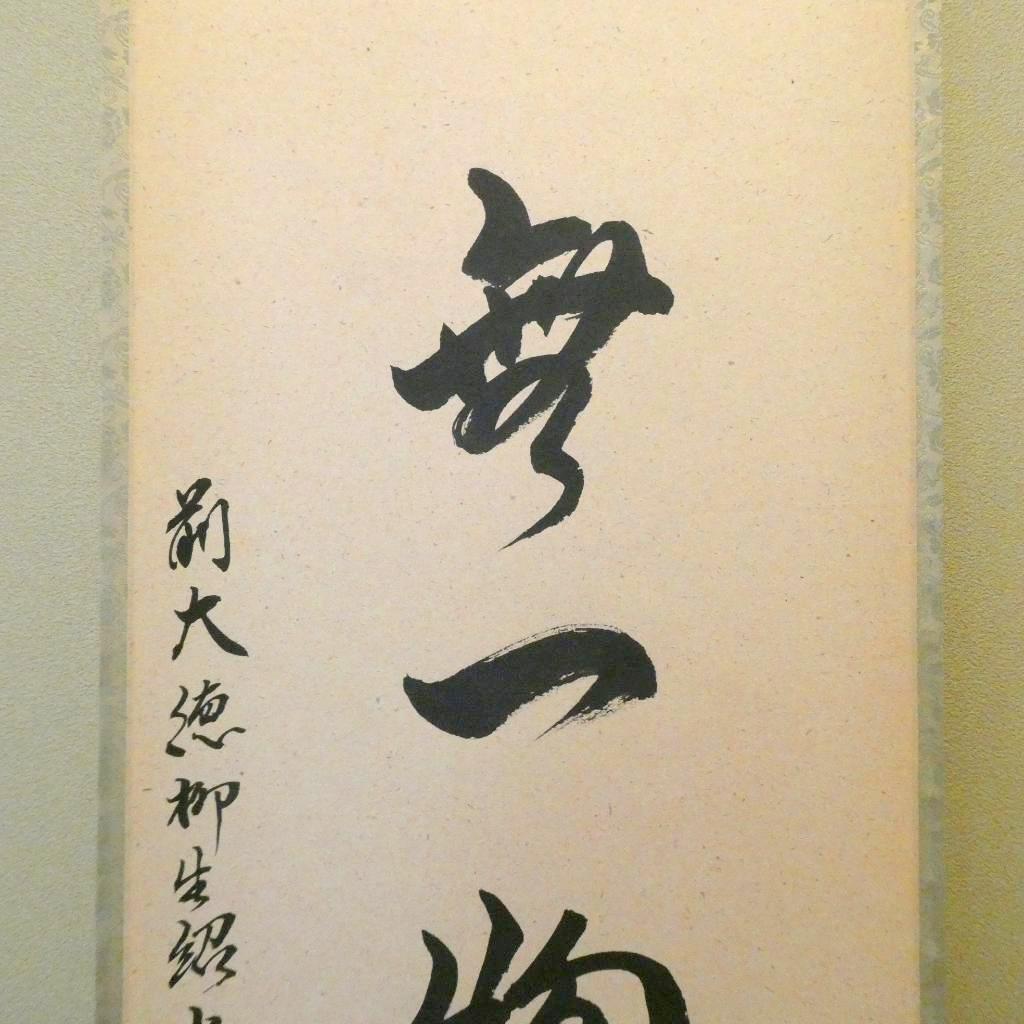 無一物
前大徳柳生紹